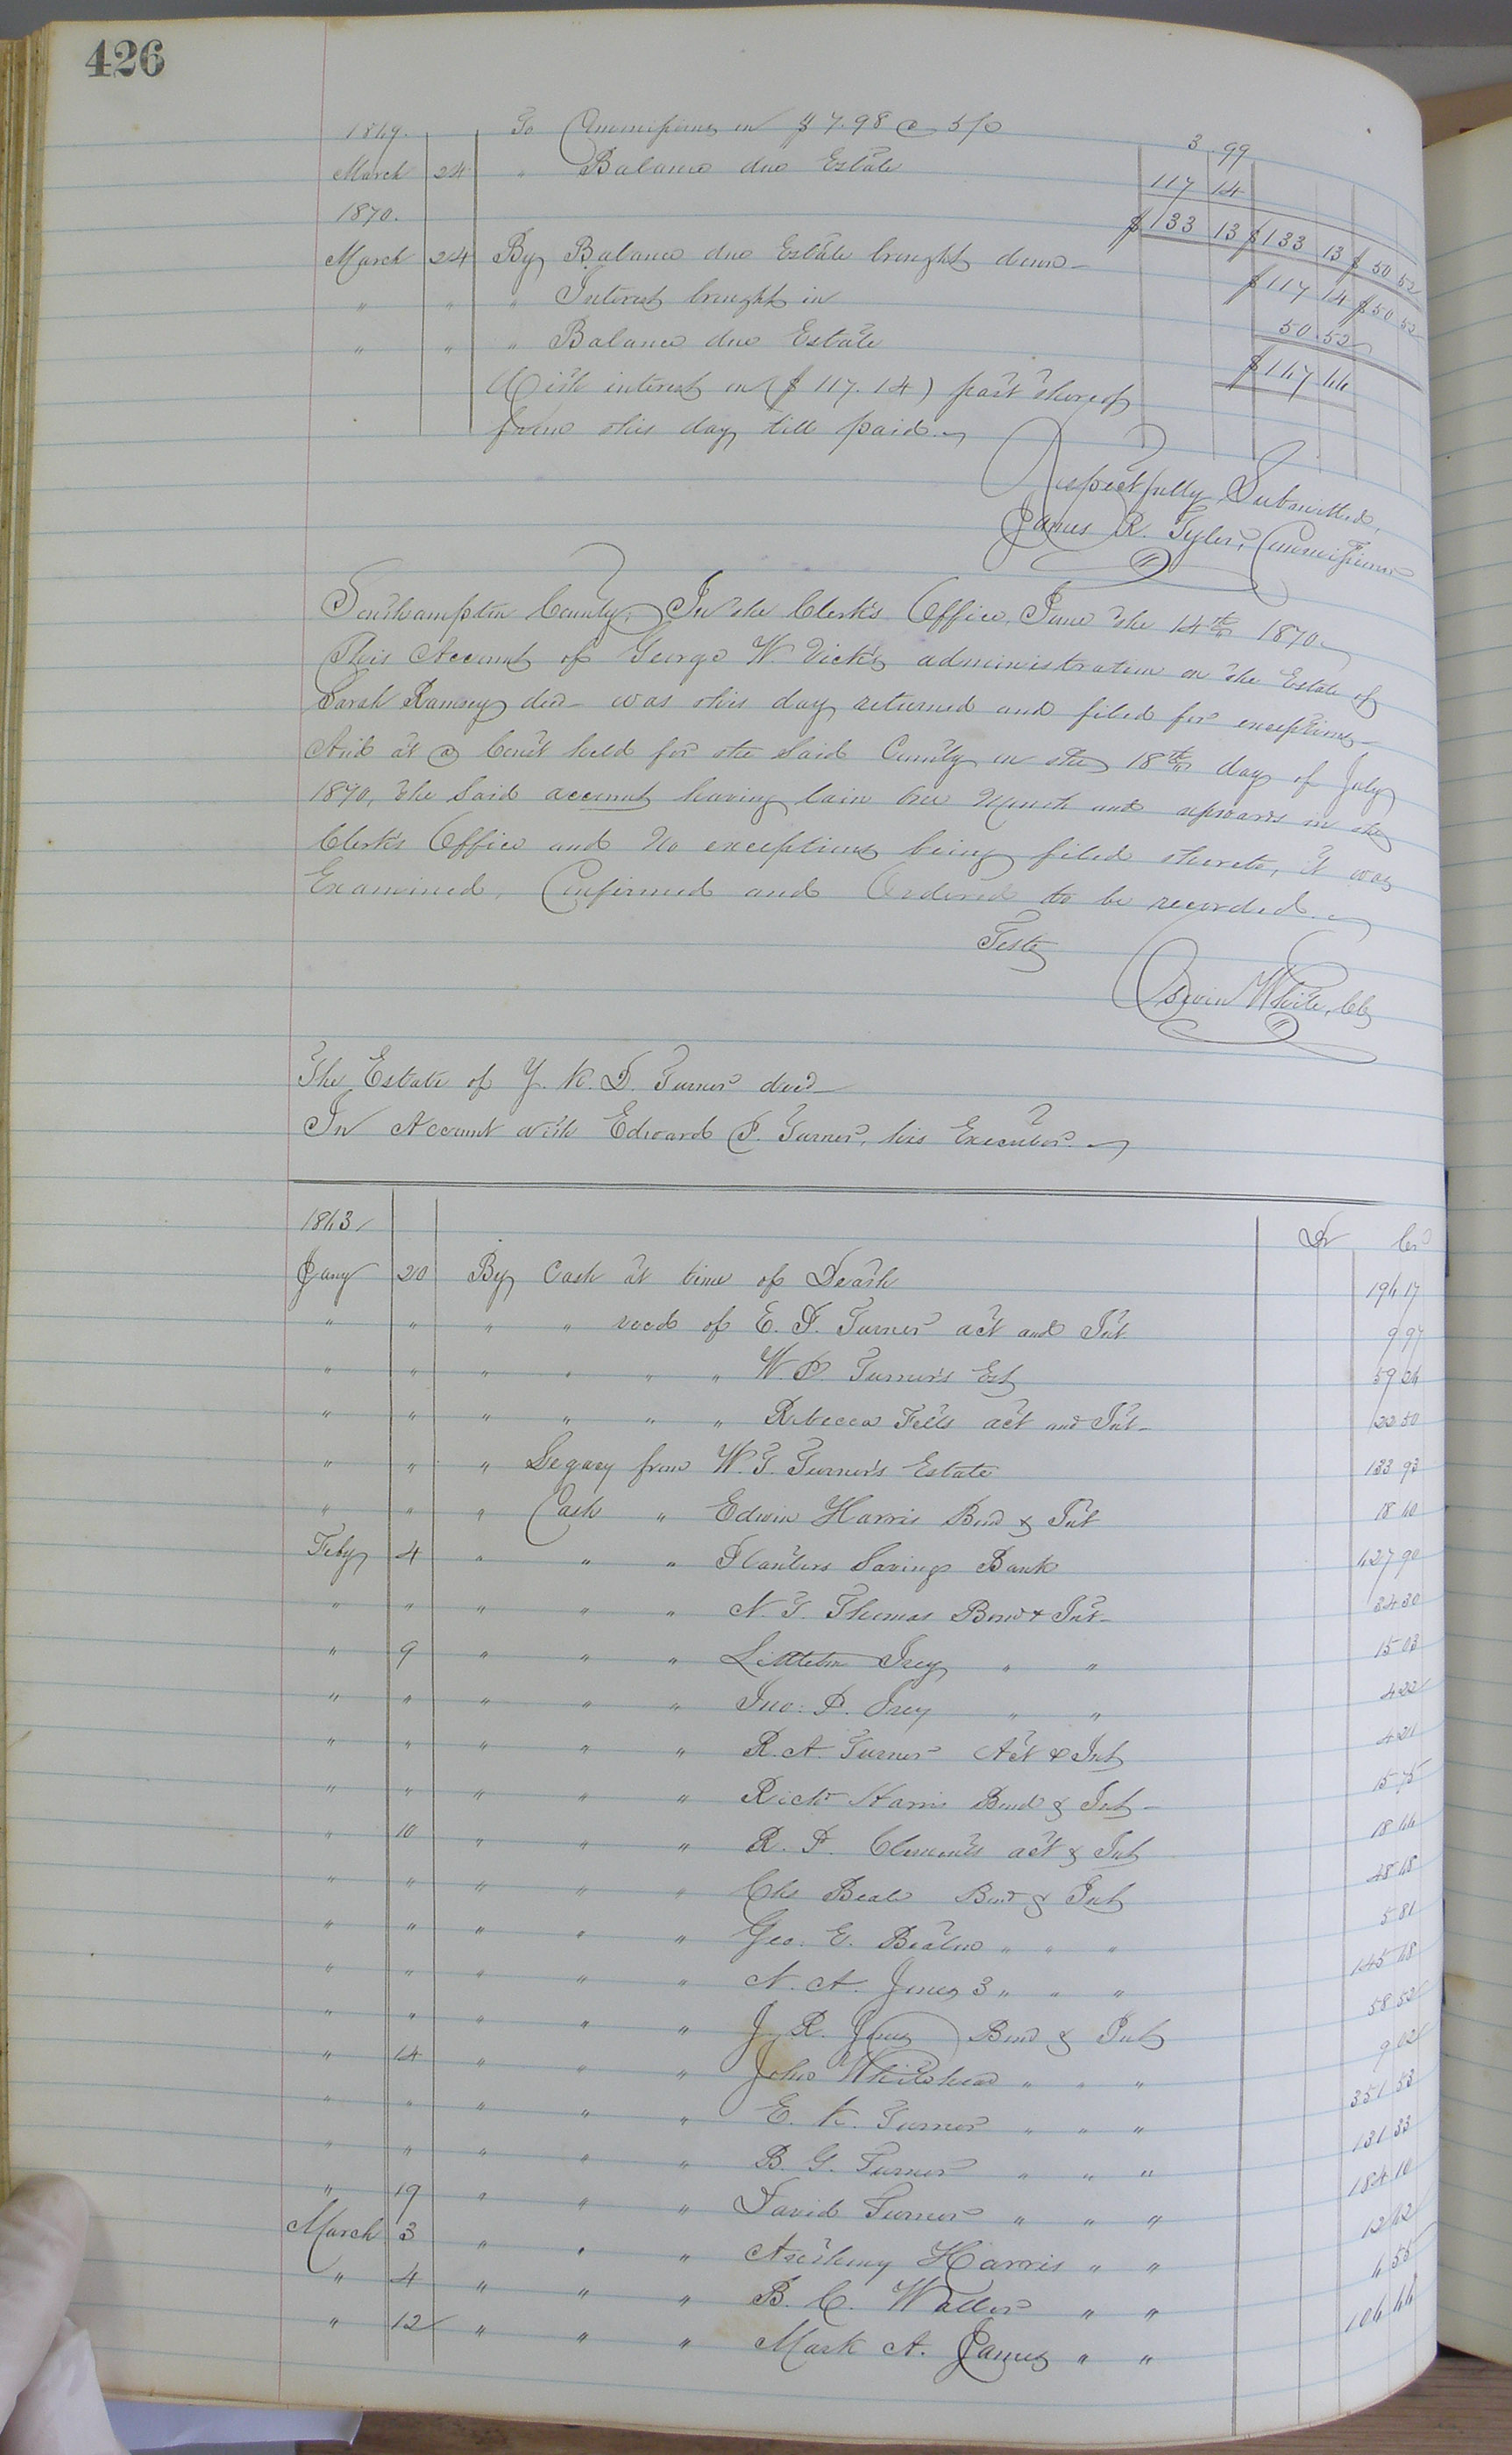 426
1869. To Commissions on $7.98 @ 5% 3 99
March 24 " Balance due Estate 117 14
1870. $133 13 $133 13 $50 52
March 24 By Balance due Estate brought down $117 14 $50 52
" " " Interest brought in 50 52
" " " Balance due Estate $167 66
With interest on ($117.14) part thereof
from this day till paid.
Respectfully Submitted,
James R. Tyler, Commissioner
Southampton County, In the Clerk's Office, June the 14th 1870
This Account of George W. Vick's administration on the Estate of
Sarah Ramsey decd was this day returned and filed for exceptions
And at a Court held for the Said County on the 18th day of July
1870, the Said account having lain One Month and upwards in the
Clerk's Office and No exceptions being filed thereto, it was
Examined, Confirmed and Ordered to be recorded.
Teste
White, Clk
The Estate of Y. K. D. Turner decd
In Account with Edward P. Turner, his Executor.
1863 Dr Cr
Jany 20 By Cash at time of Death 196 17
" " " " recd of E. P. Turner act and Int 9 97
" " " " " " W. P. Turner's Est 59 26
" " " " " " Rebecca act and Int 22 50
" " " Legacy from W. T. Turner's Estate 133 93
" " " Cash " Edwin Harris Bond & Int 18 60
Feby 4 " " " Planters Savings Bank 627 90
" " " " " N. T. Thomas Bond & Int 34 30
" 9 " " " Littleton Ivey " " 15 03
" " " " " Jno. P. Ivey " " 4 22
" " " " " R. A. Turner Act & Int 4 21
" " " " " Richd Harris Bond & Int 15 75
" 10 " " " R. P. Clements act & Int 18 66
" " " " " Chs Beale Bond & Int 48 68
" " " " " Geo. E. Beaton " " " 5 81
" " " " " N. A. Jones 3 " " " 145 68
" " " " " J. R. Jones Bond & Int 58 52
" 14 " " " John Whitehead " " " 9 62
" " " " " E. K. Turner " " " 351 53
" " " " " B. G. Turner " " " 131 33
" 19 " " " David Turner " " " 184 10
March 3 " " " Harris " " 12 62
" 4 " " " B. C. Waller " " 6 55
" 12 " " " Mark A. James " " 106 66